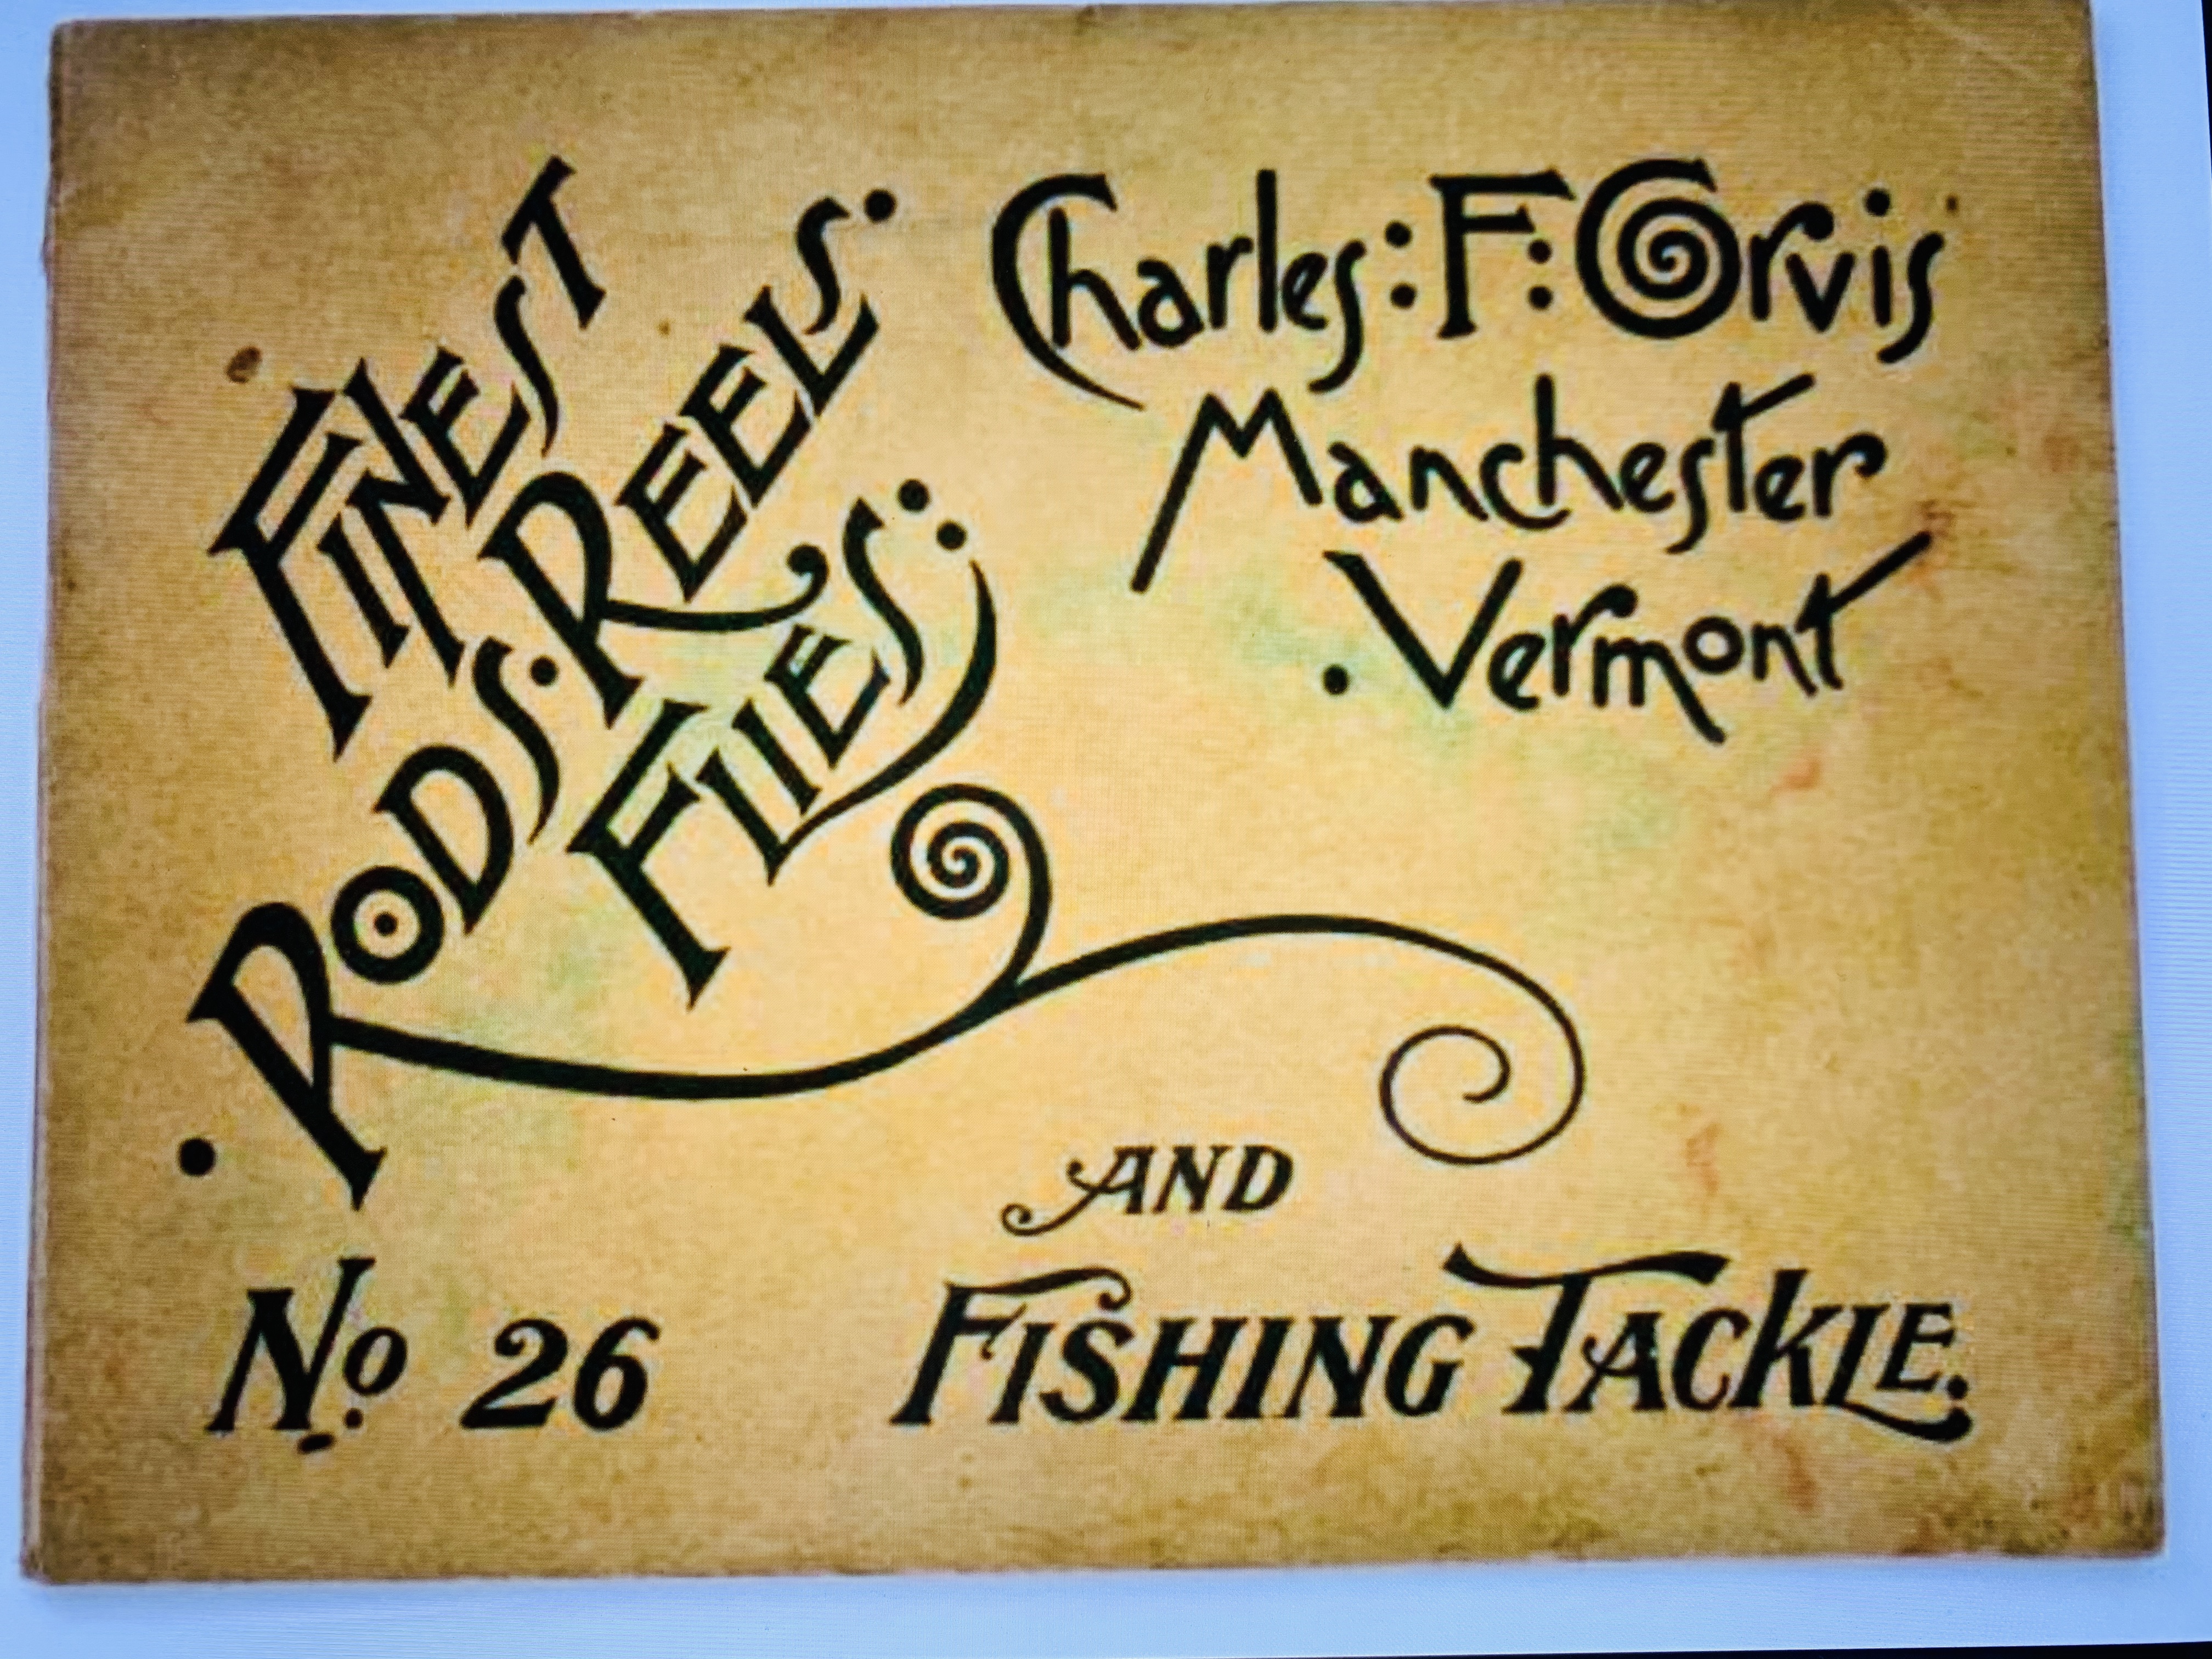 FINEST
RODS. REELS.
FLIES:
Charles: F: Orvis
Manchester
. Vermont
AND
FISHING TACKLE.
No. 26